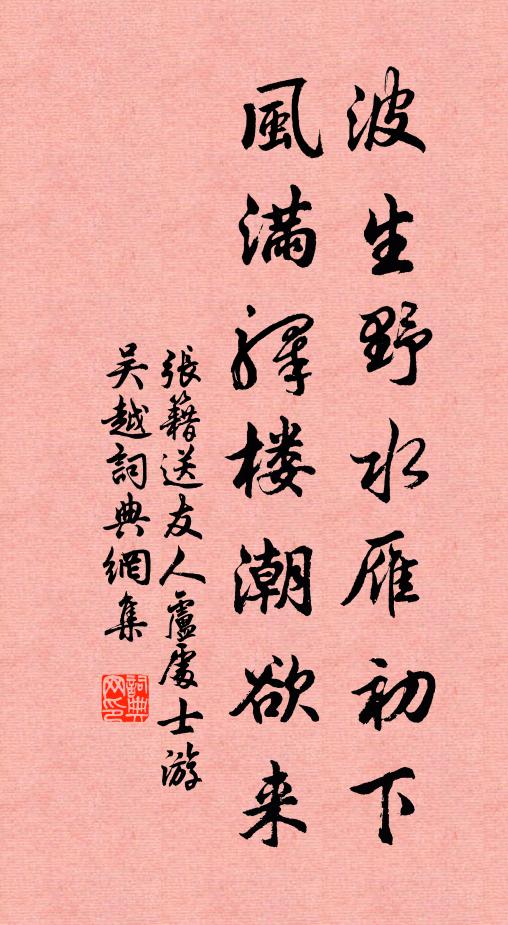 波生野水雁初下
風满驛楼潮欲来
張籍送友人盧處士游
吴越詞典網集
詞典网印